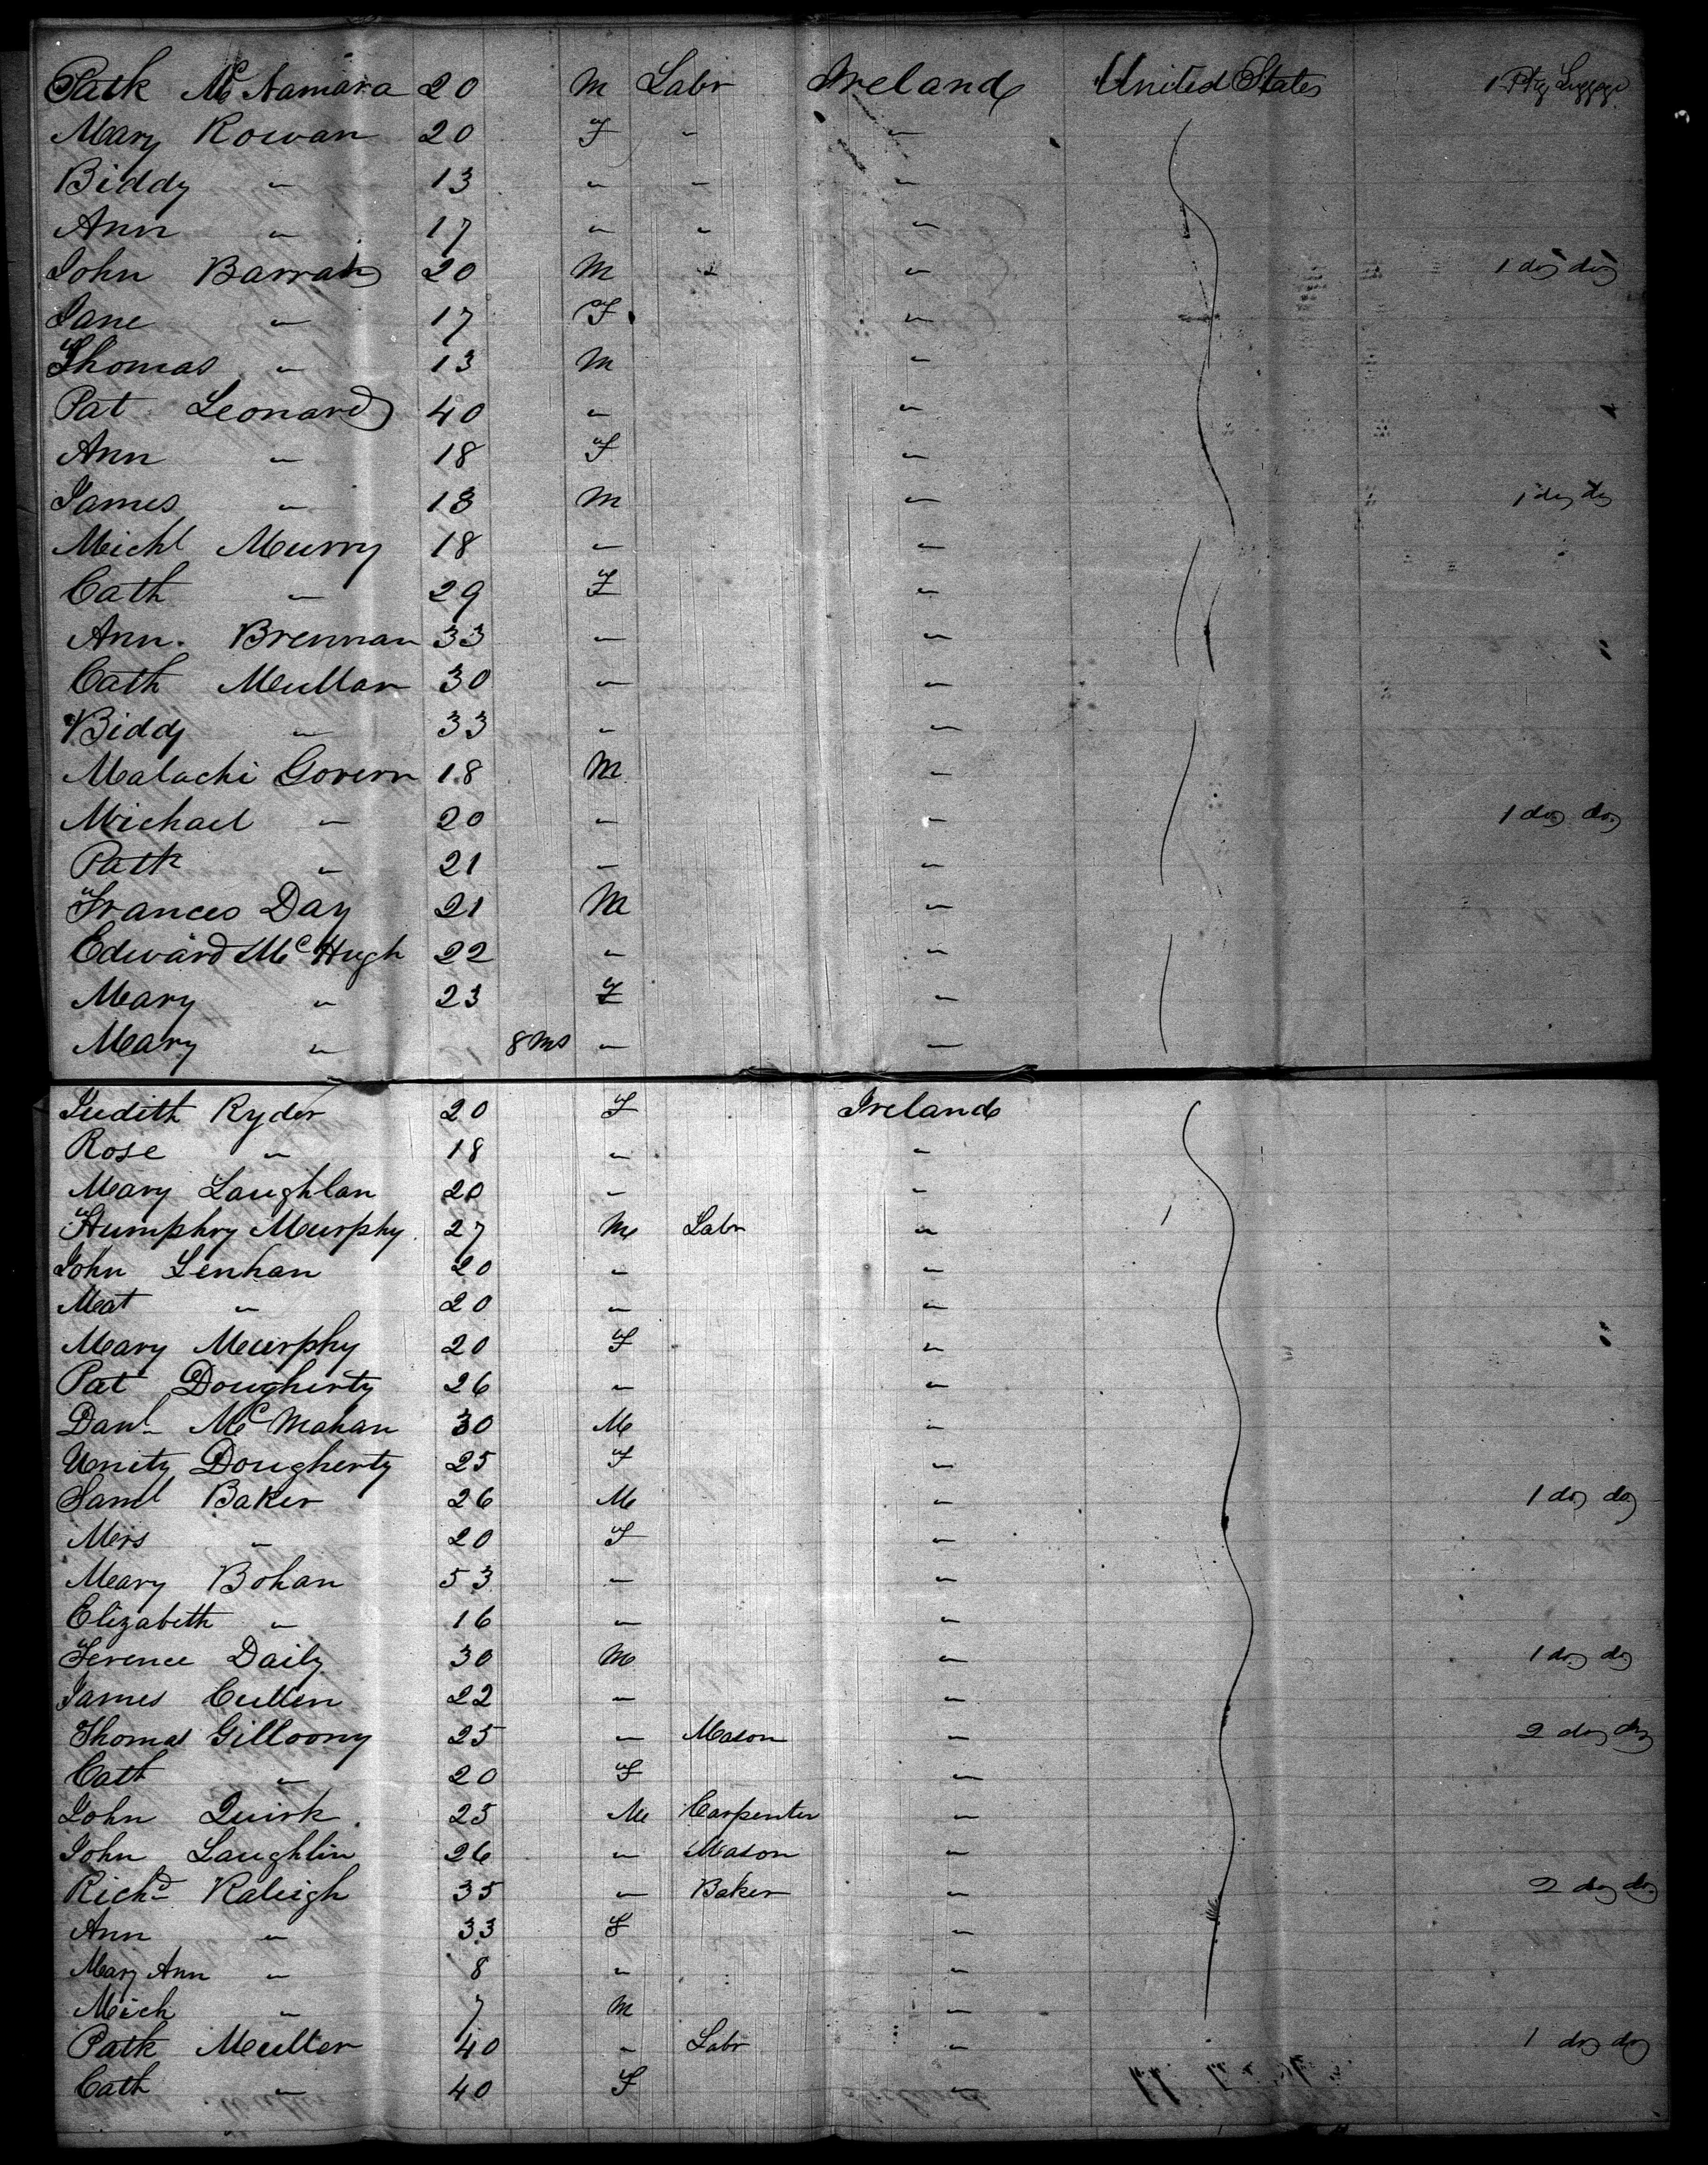 Patk McNamara 20 M Labr Ireland United States 1 Pkg Luggage
Mary Rowan 20 F " "
Biddy " 13 " " "
Ann " 17 " " "
John Barratt 20 M " " 1 do do
Jane " 17 F "
Thomas " 13 M "
Pat Leonard 40 " "
Ann " 18 F "
James " 13 M " 1 do do
Michl Murry 18 " "
Cath " 29 F "
Ann Brennan 33 " "
Cath Mullan 30 " "
Biddy " 33 " "
Malachi Govern 18 M "
Michael " 20 " " 1 do do
Patk " 21 " "
Frances Day 21 M "
Edward McHugh 22 " "
Mary " 23 F "
Mary " 8 Ms " "
Judith Ryder 20 F Ireland
Rose " 18 " "
Mary Laughlan 20 " "
Humphry Murphy 27 M Labr "
John Lenhan 20 " "
Mat " 20 " "
Mary Murphy 20 F "
Pat Dougherty 26 " "
Danl McMahan 30 M "
Unity Dougherty 25 F "
Saml Baker 26 M " 1 do do
Mrs " 20 F "
Mary Bohan 53 " "
Elizabeth " 16 " "
Terence Daily 30 M " 1 do do
James Cullen 22 " "
Thomas Gilloony 25 " Mason " 2 do do
Cath " 20 F "
John Quirk 25 M Carpenter "
John Laughlin 26 " Mason "
Richd Raleigh 35 " Baker " 2 do do
Ann " 33 F "
Mary Ann " 8 " "
Mich " 7 M "
Patk Muller 40 " Labr " 1 do do
Cath " 40 F "